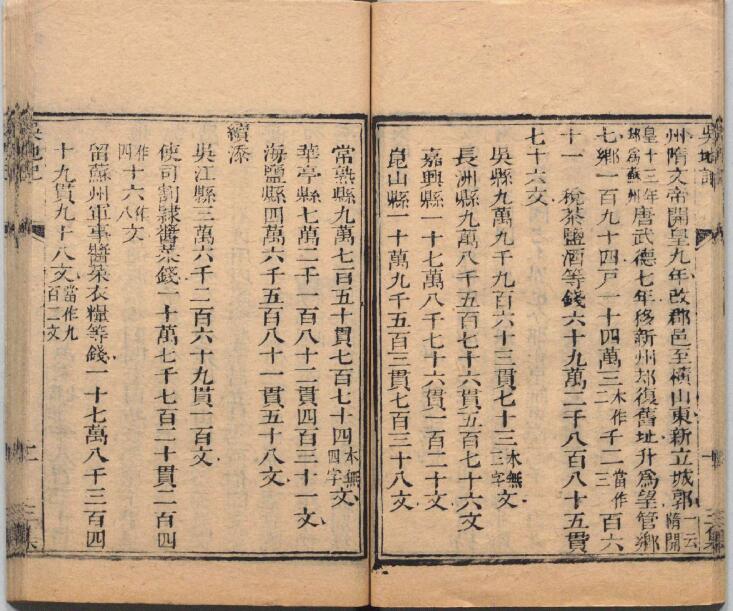 州隋文帝開皇九年改郡邑至橫山東新立城郭一云隋開
皇十三年唐武德七年移新州却復舊址升爲望管鄉
郡爲蘇州
七鄉一百九十四戸一十四萬三一本作二千二當作三百六
十一 稅茶鹽酒等錢六十九萬二千八百八十五貫
七十六文
吳縣九萬九千九百六十三貫七十三本無三字文
長洲縣九萬八千五百七十六貫五百七十六文
嘉興縣一十七萬八千七十六貫一百二十文
崑山縣一十萬九千五百三貫七百三十八文
常熟縣九萬七百五十貫七百七十四本無四字文
華亭縣七萬二千一百八十二貫四百三十一文
海鹽縣四萬六千五百八十一貫五十八文
續添
吳江縣三萬六千二百六十九貫一百文
使司割隸醬菜錢一十萬七千七百二十貫二百四
作四十六作八文
留蘇州軍事醬菜衣糧等錢一十七萬八千三百四
十九貫九十八文當作九百二文